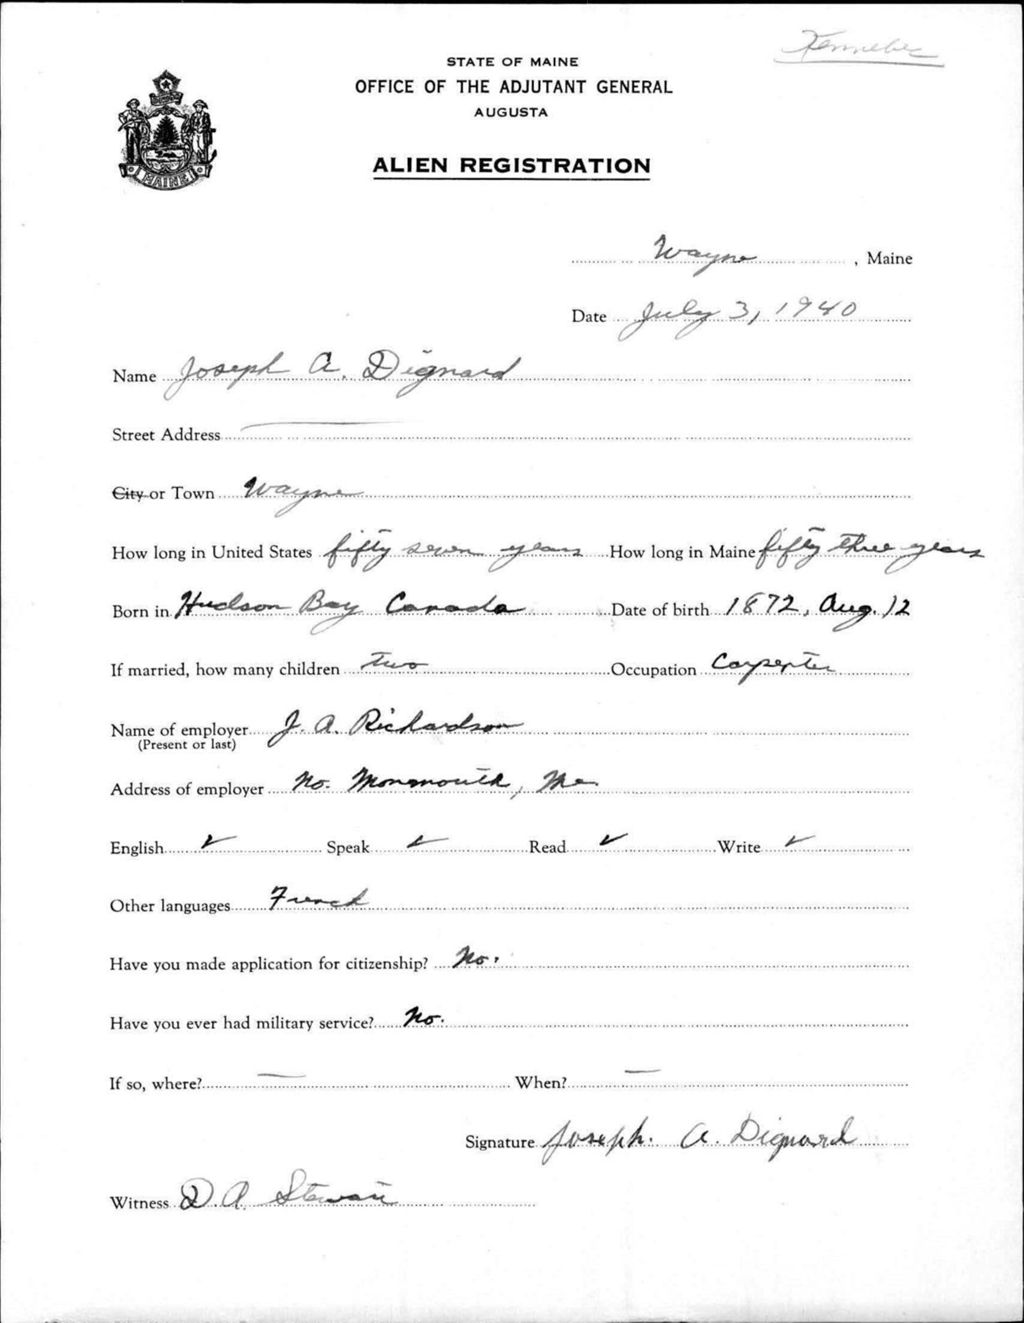 Kennebec
STATE OF MAINE
OFFICE OF THE ADJUTANT GENERAL
AUGUSTA
ALIEN REGISTRATION
MAINE
Wayne, Maine
Date July 3, 1940
Name Joseph A. Dignard
Street Address —
City or Town Wayne
How long in United States fifty seven years How long in Maine fifty three years
Born in Hudson Bay Canada Date of birth 1872, Aug. 12
If married, how many children two Occupation Carpenter
Name of employer J. A. Richardson
(Present or last)
Address of employer No. Monmouth, Me.
English ✓ Speak ✓ Read ✓ Write ✓
Other languages French
Have you made application for citizenship? No.
Have you ever had military service? No.
If so, where? — When? —
Signature Joseph. A. Dignard
Witness D. A. Stewart